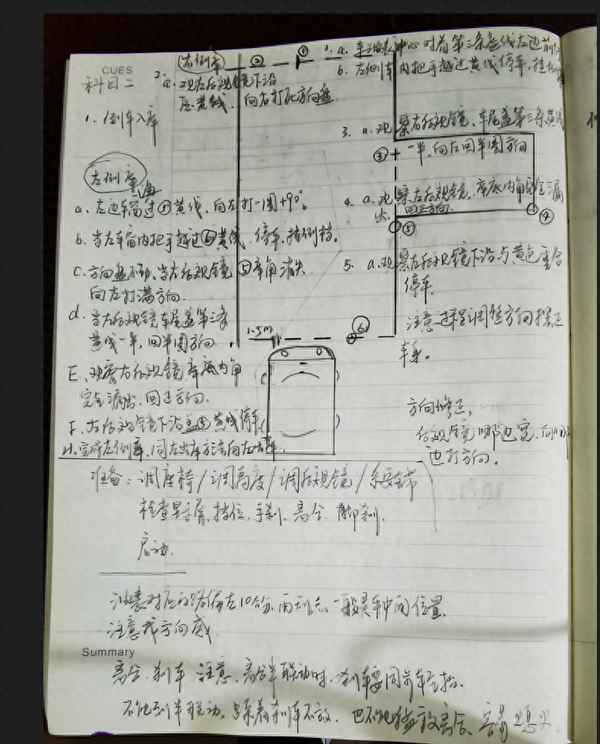 CUES
科目二
1. 倒车入库
右倒库
② ①
2. a. 观左后视镜下沿
压黄线, 向右打死方向盘
1. a. 中心对着第三条 线左边前
b. 左侧车 内把手越过黄线停车, 挂
3. a. 观察右后视镜, 车尾盖第三条黄线
一半, 向左回半圈方向
③
4. a. 观察左右后视镜, 库底内角 漏
出, 回正方向.
④
⑤
5. a. 观察左后视镜下沿与黄色重合
停车.
注意过程调整方向摆正
车身.
左倒库
a. 左边车窗过①黄线, 向左打一圈+90°.
b. 当左车窗内把手越过⑥黄线, 停车, 挂倒档.
c. 方向盘不动, 当左后视镜⑤库角消失
向左打满方向.
d. 当左后视镜车尾盖第三条
黄线一半, 回半圈方向.
E. 观察左右后视镜库底内角
完全漏出, 回正方向.
F. 左后视镜下沿 黄线停车.
H. 完成左倒库, 同左出库方法向左出库.
1.5m
⑥
方向修正,
后视镜哪边宽, 向哪
边打方向.
准备: 调座椅/调高度/调后视镜/系安全带
检查 挡位, 手刹, 离合, 脚刹.
启动.
注意 对应 左10公分, 一般是车中间位置.
注意找方向感
Summary
离合, 刹车 注意, 离合半联动时, 刹车要同 车轻抬.
不能到半联动, 刹车不放, 也不能 放离合, 容易熄火.